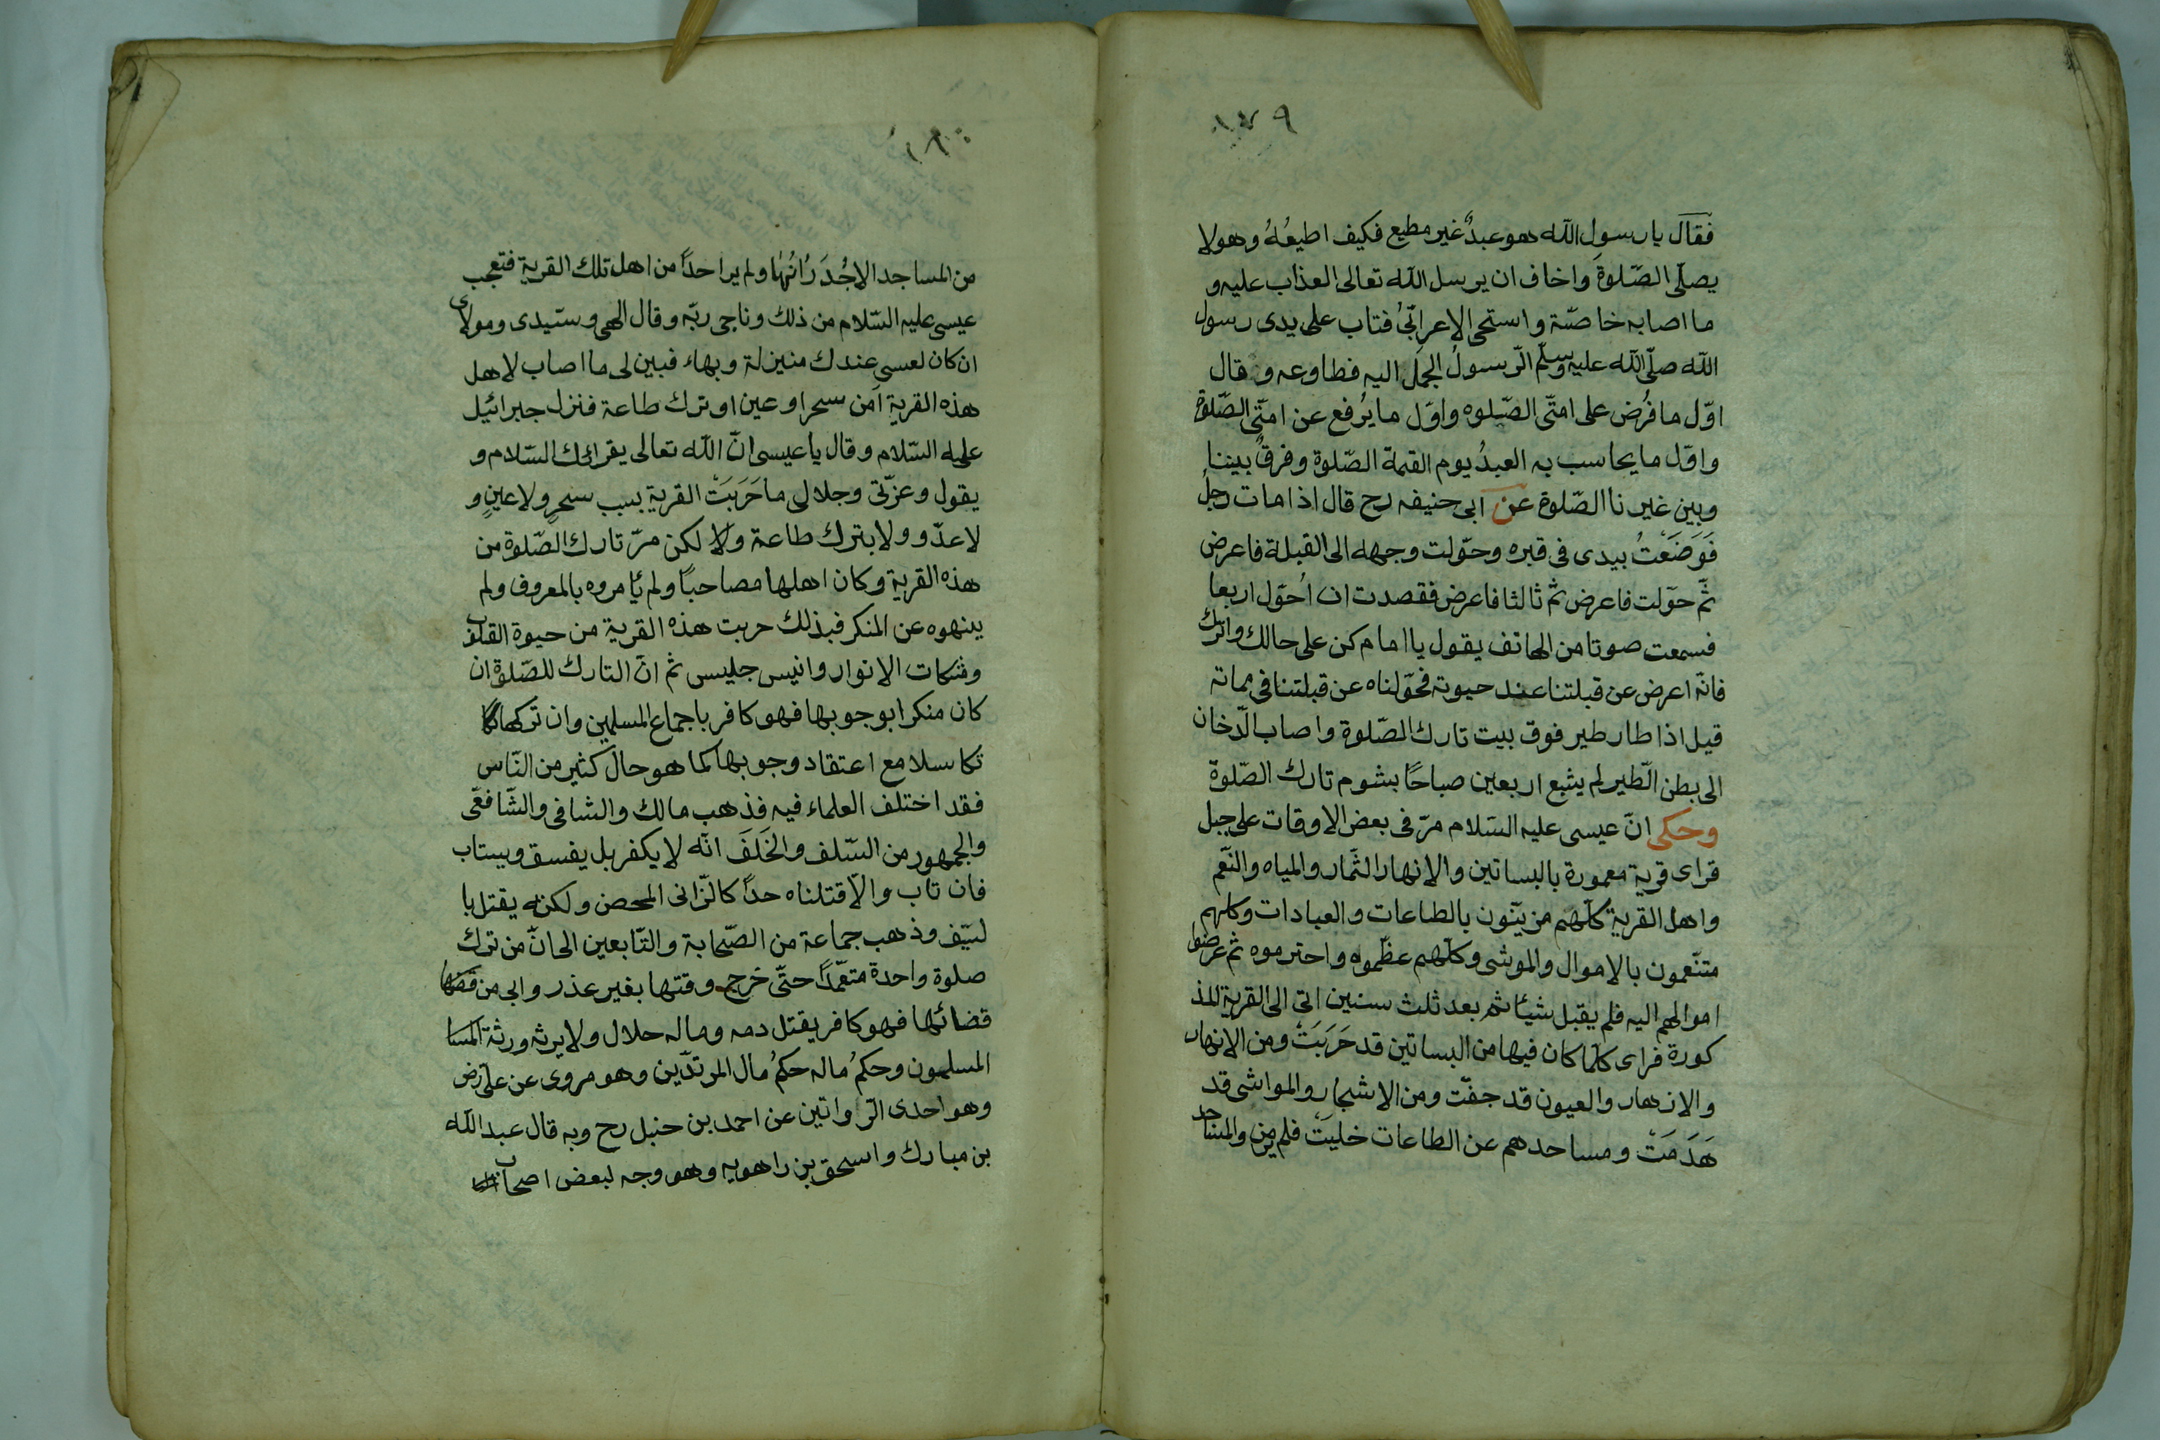 ١٧٩
فقال يا رسول الله هو عبدٌ غير مطيع فكيف اطيعُهُ وهو لا
يصلّى الصّلوة واخاف ان يرسل الله تعالى العذاب عليه و
ما اصابه خاصّة واستحى الاعرابىُّ فتاب على يدى رسول
الله صلّى الله عليه وسلّم الرّسولُ الجمل اليه فطاوعه و قال
اوّل ما فُرض على امتّى الصّلوه واوّل ما يُرفع عن امتّى الصّلوة
واوّل ما يحاسب به العبدُ يوم القيمة الصّلوة وفرقٌ بيننا
وبين غيرنا الصّلوة عن ابى حنيفه رح قال اذا مات رجلٌ
فَوَضَعْتُ بيدى فى قبره وحوّلت وجهه الى القبلة فاعرض
ثمّ حوّلت فاعرض ثم ثالثا فاعرض فقصدت ان اُحوّل اربعا
فسمعت صوتا من الهاتف يقول يا امام كن على حالك واترك
فانّه اعرض عن قبلتنا عند حيوته فحوّلناه عن قبلتنا فى مماته
قيل اذا طار طير فوق بيت تارك الصّلوة واصاب الدّخان
الى بطن الطّير لم يشبع اربعين صباحًا بشوم تارك الصّلوة
وحكى انّ عيسى عليه السّلام مرّ فى بعض الاوقات على جبل
فراى قرية معمورة بالبساتين والانهار الثّمار والمياه والنّعم
واهل القرية كلّهم مزيّنون بالطاعات والعبادات وكلهم
متنّعمون بالاموال والموشى وكلّهم عظّموه واحترموه ثم عرضوا
اموالهم اليه فلم يقبل شيئا ثم بعد ثلث سنين اتى الى القرية المذ
كورة فراى كلّما كان فيها من البساتين قد خَرَبَتْ ومن الانهار
والازهار والعيون قد جفّت ومن الاشجار والمواشى قد
هَدَمَتْ ومساجدهم عن الطاعات خليَتْ فلم ير من والمساجد
١٨٠
من المساجد الا جُدَرُانُهٰا ولم ير احدًا من اهل تلك القرية فتعجب
عيسى عليه السّلام من ذلك وناجى ربّه وقال الهى وسيّدى ومولاى
ان كان لعسى عندك منيزلة وبهاء فبين لى ما اصاب لاهل
هذه القرية اَمن سحر او عين او ترك طاعة فنزل جبرائيل
عليه السّلام وقال يا عيسى انّ الله تعالى يقرائك السّلام و
يقول وعزّتى وجلالى ما خَرَبَتْ القرية بسبب سحرٍ ولا عينٍ و
لا عدّو ولا بترك طاعة ولا لكن مرّ تارك الصّلوة من
هذه القرية وكان اهلها مصاحبًا ولم يأمروه بالمعروف ولم
ينهوه عن المنكر فبذلك خربت هذه القرية من حيوة القلوب
ومشكات الانوار وانيس جليسى ثم انّ التارك للصّلوة ان
كان منكرا بوجوبها فهو كافر باجماع المسلمين وان تركها
تكاسلا مع اعتقاد وجوبها كما هو حال كثير من النّاس
فقد اختلف العلماء فيه فذهب مالك والشافى والشّافعّى
والجمهور من السّلف والخَلَفَ انّه لا يكفر بل يفسق ويستاب
فان تاب والّا قتلناه حدًا كالزّانى المحصن ولكنّه يقتل با
لسّيف وذهب جماعة من الصّحابة والتّابعين الى انّ من ترك
صلوة واحدة متعمّدًا حتّى خرج وقتها بغير عذر وابى من
قضائها فهو كافر يقتل دمه وماله حلال ولا يرثه ورثة
المسلمون وحكمُ ماله حكمُ مال المرتدّين وهو مروى عن علّى رض
وهو احدى الرّواتين عن احمد بن حنبل رح وبه قال عبد الله
بن مبارك واسحق بن راهويه وهو وجه لبعض اصحاب